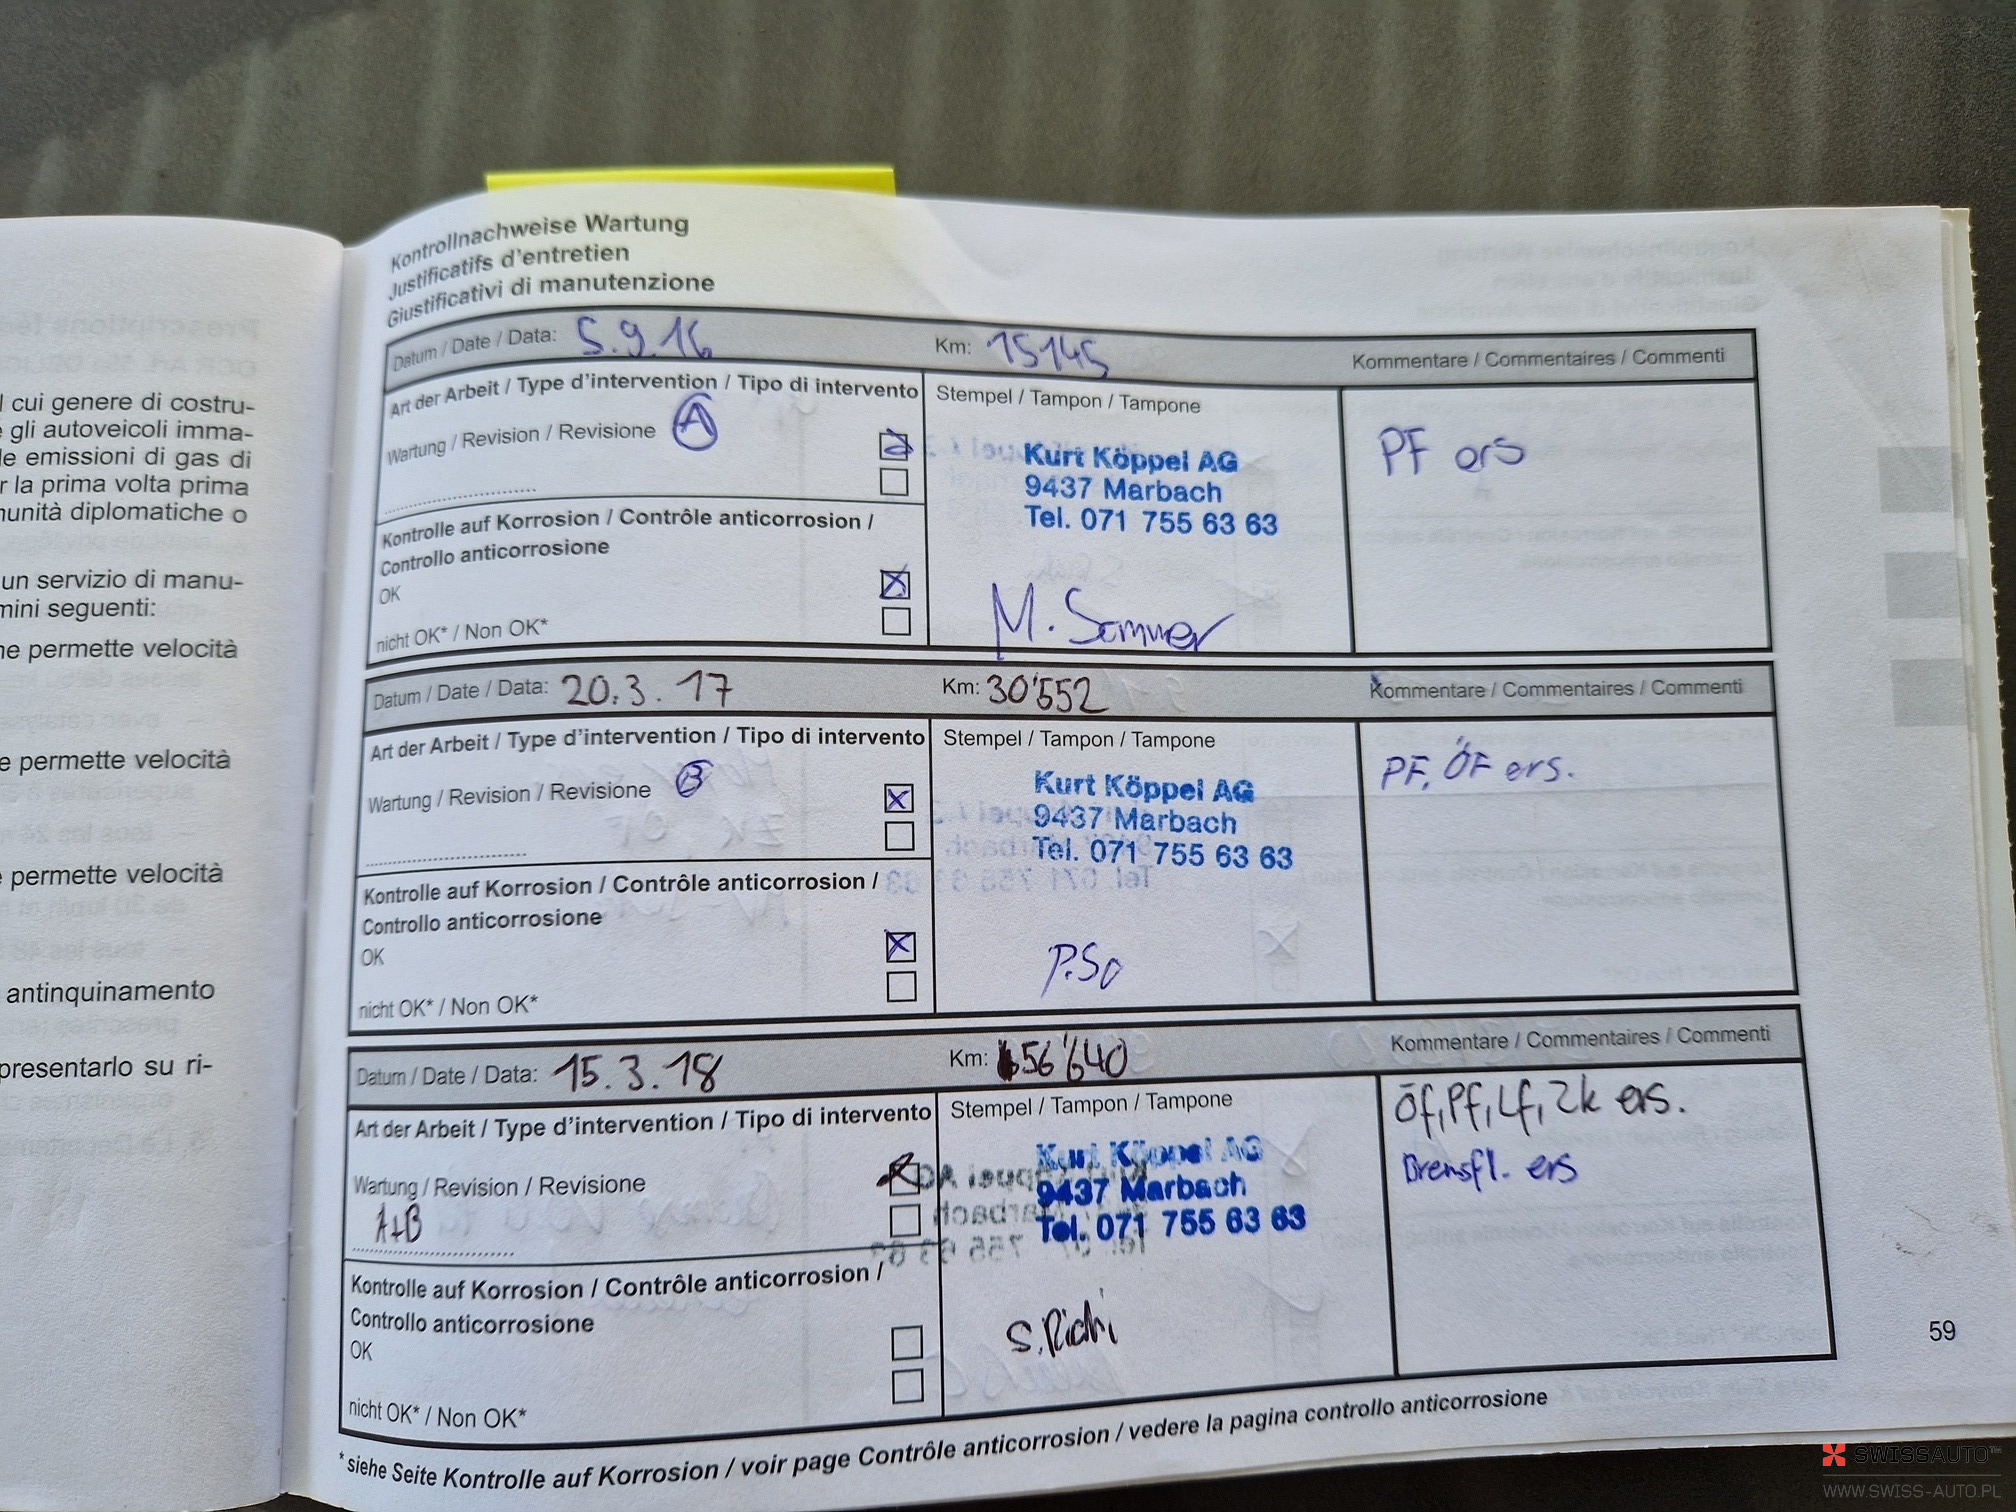 l cui genere di costru-
e gli autoveicoli imma-
le emissioni di gas di
r la prima volta prima
nunità diplomatiche o
un servizio di manu-
mini seguenti:
ne permette velocità
e permette velocità
e permette velocità
antinquinamento
presentarlo su ri-
Kontrollnachweise Wartung
Justificatifs d'entretien
Giustificativi di manutenzione
Datum / Date / Data: 5.9.16 Km: 15145 Kommentare / Commentaires / Commenti
Art der Arbeit / Type d'intervention / Tipo di intervento Stempel / Tampon / Tampone
Wartung / Revision / Revisione A
Kurt Köppel AG
9437 Marbach
Tel. 071 755 63 63
PF ers
Kontrolle auf Korrosion / Contrôle anticorrosion /
Controllo anticorrosione
OK
nicht OK* / Non OK*
M. Sommer
Datum / Date / Data: 20.3.17 Km: 30'552 Kommentare / Commentaires / Commenti
Art der Arbeit / Type d'intervention / Tipo di intervento Stempel / Tampon / Tampone
Wartung / Revision / Revisione B
Kurt Köppel AG
9437 Marbach
Tel. 071 755 63 63
PF, ÖF ers.
Kontrolle auf Korrosion / Contrôle anticorrosion /
Controllo anticorrosione
OK
nicht OK* / Non OK*
P.So
Datum / Date / Data: 15.3.18 Km: 56'640 Kommentare / Commentaires / Commenti
Art der Arbeit / Type d'intervention / Tipo di intervento Stempel / Tampon / Tampone
Wartung / Revision / Revisione
A+B
Kurt Köppel AG
9437 Marbach
Tel. 071 755 63 63
Öf, Pf, Lf, Zk ers.
Bremsfl. ers
Kontrolle auf Korrosion / Contrôle anticorrosion /
Controllo anticorrosione
OK
nicht OK* / Non OK*
* siehe Seite Kontrolle auf Korrosion / voir page Contrôle anticorrosion / vedere la pagina controllo anticorrosione
59
SWISSAUTO™
WWW.SWISS-AUTO.PL